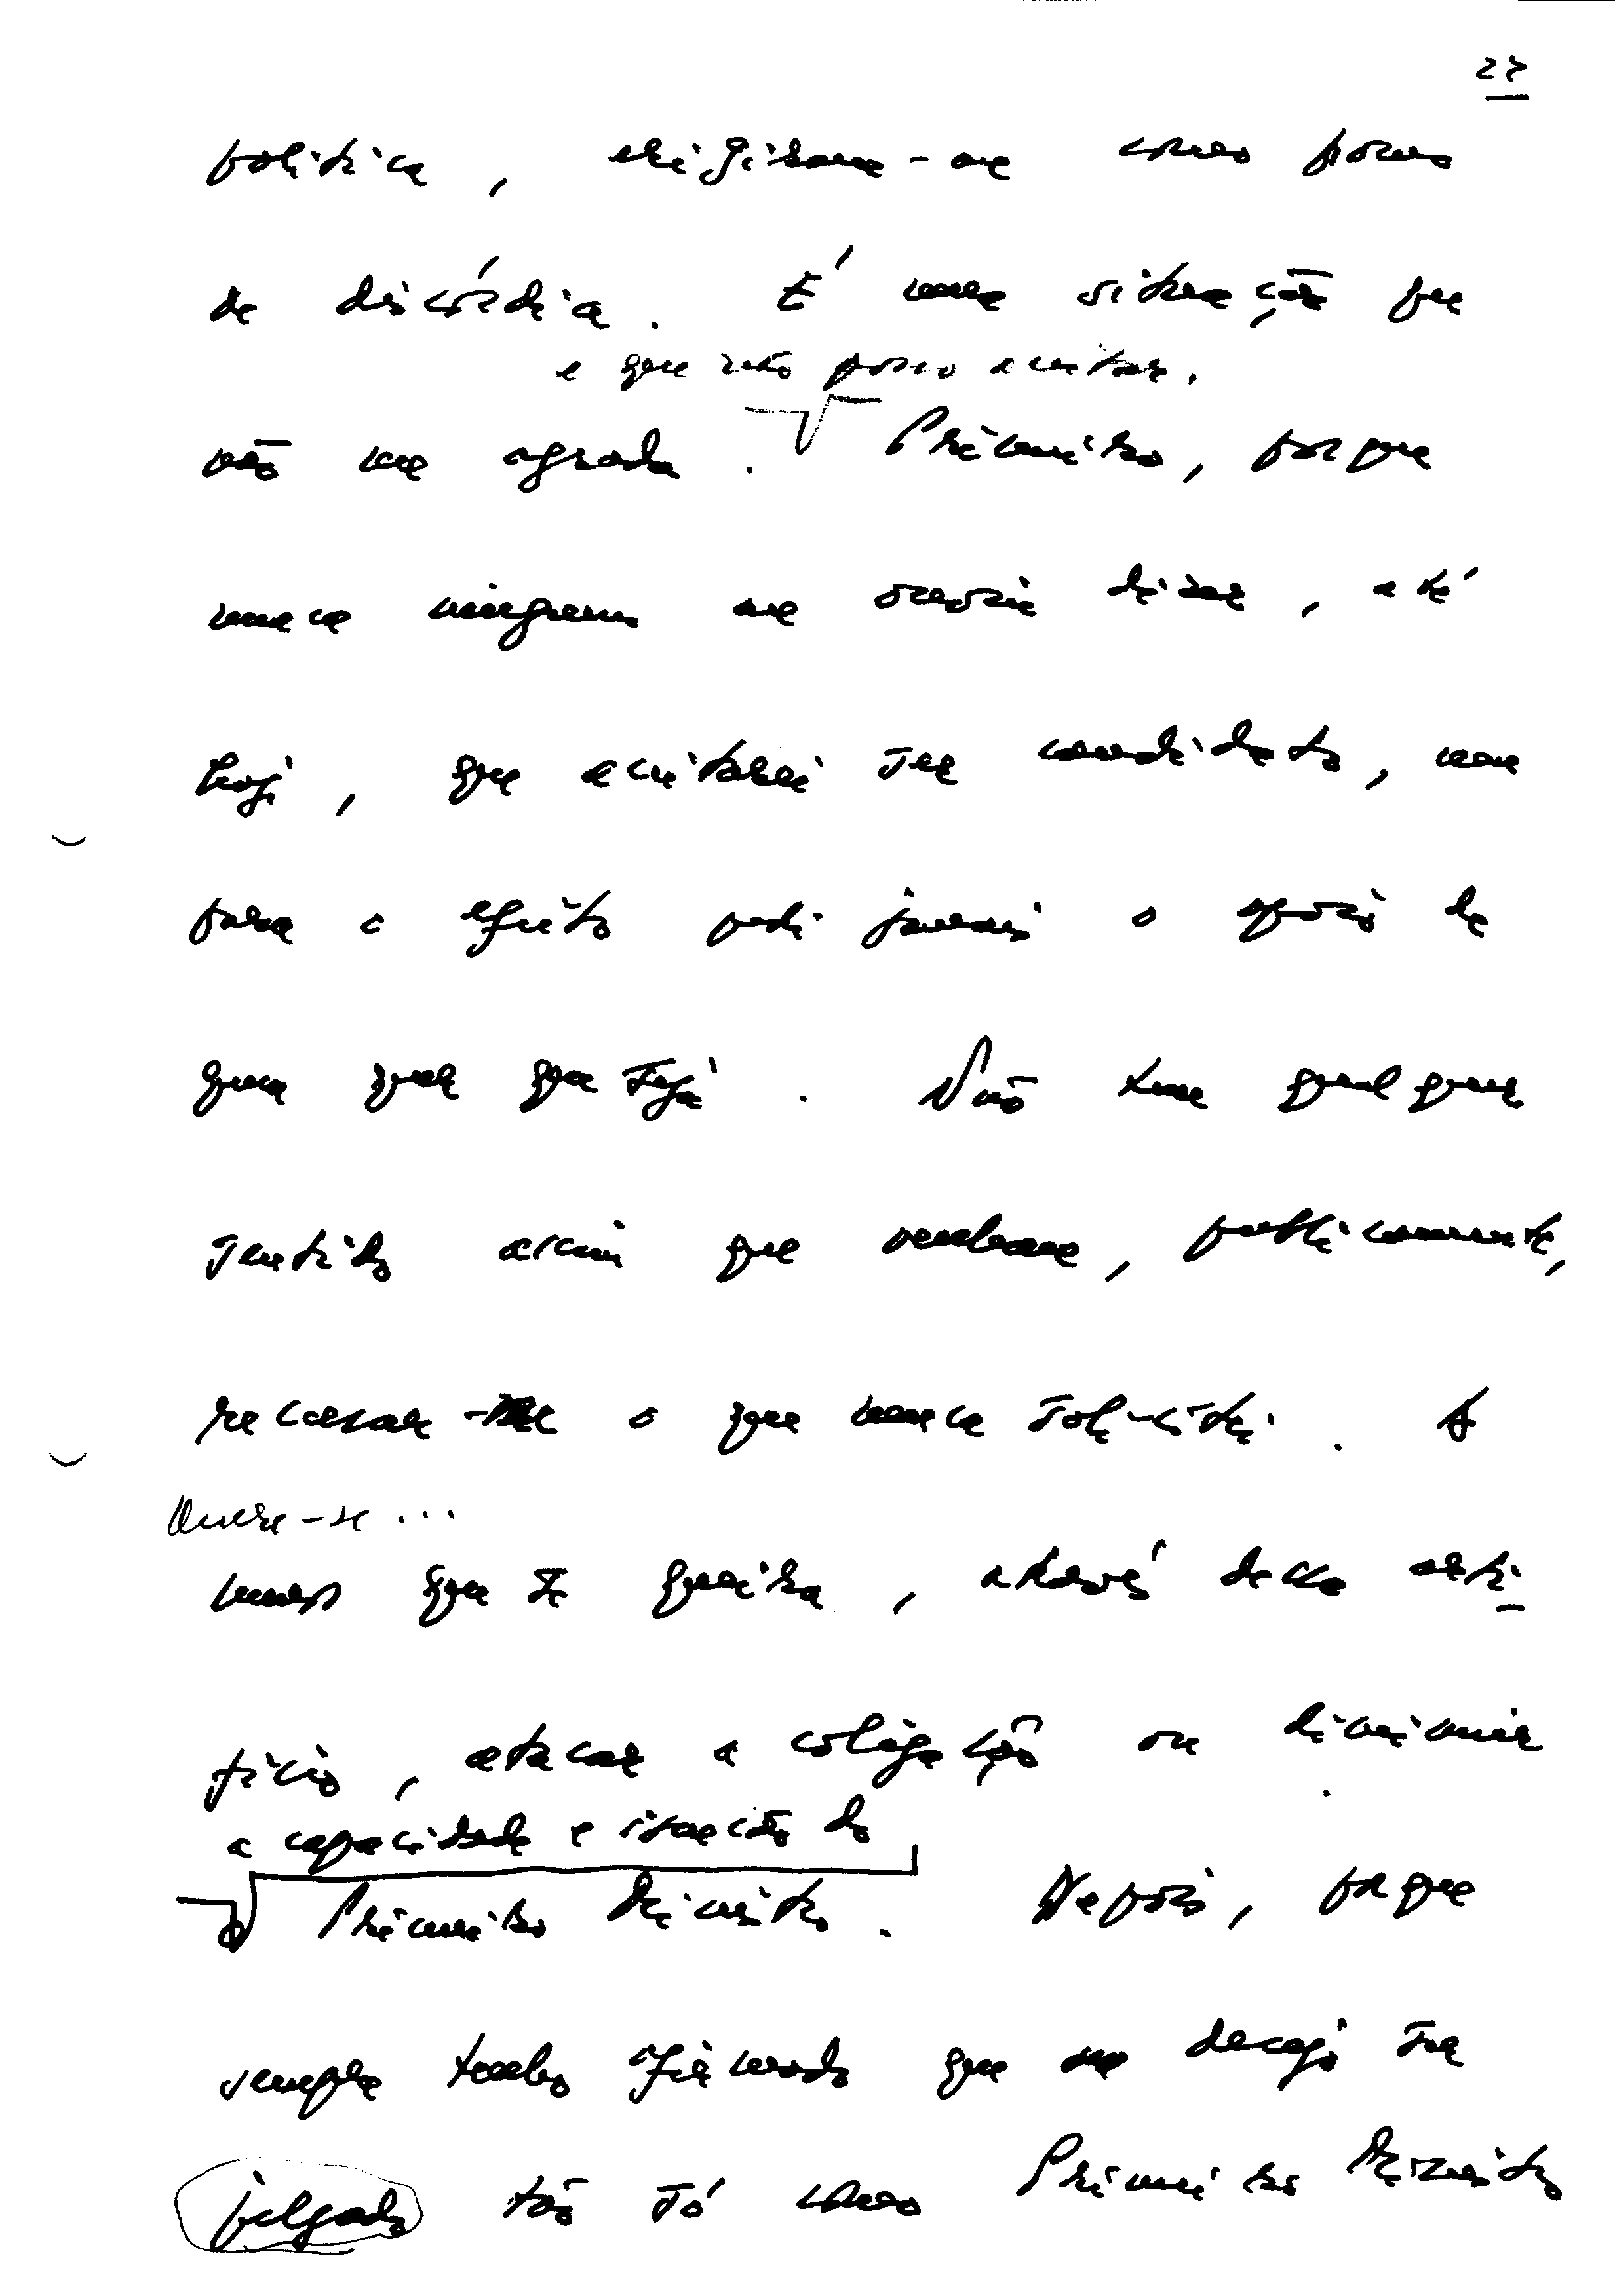 27
política, erigiram-me como pomo
de discórdia. É uma situação que
e que não posso aceitar.
não me agrada. Primeiro, porque
nunca ninguém me ouviu dizer, até
hoje, que aceitarei ser candidato, nem
para o efeito pedi jamais o apoio de
quem quer que seja. Não tem qualquer
sentido assim que venham, publicamente,
recusar-me o que nunca solicitei. A
Quere-se...
menos que se queira, através desse arti-
fício, atacar a coligação ou diminuir
a capacidade e isenção do
Primeiro Ministro. Depois, porque
sempre tenho afirmado que me desejo ser
julgado tão só como Primeiro Ministro